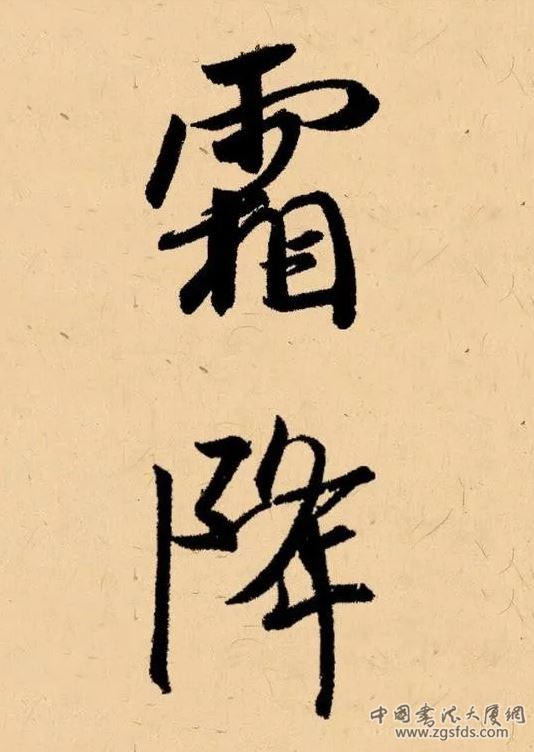 霜降
中国书法大厦網
www.zgsfds.com